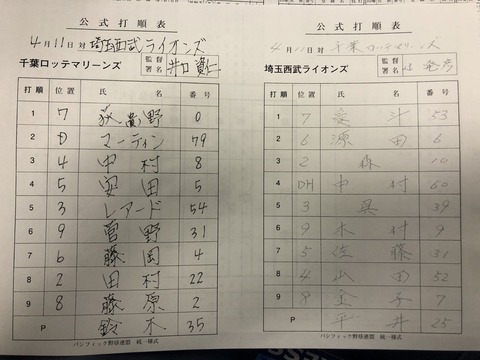 公式打順表
4月11日 対 埼玉西武ライオンズ
千葉ロッテマリーンズ 監督署名 井口資仁
打順 位置 氏名 番号
1 7 荻貴野 0
2 D マーティン 79
3 4 中村 8
4 5 安田 5
5 3 レアード 54
6 9 菅野 31
7 6 藤岡 4
8 2 田村 22
9 8 藤原 2
P 鈴木 35
パシフィック野球連盟 統一様式
公式打順表
4月11日 対 千葉ロッテマリーンズ
埼玉西武ライオンズ 監督署名 辻発彦
打順 位置 氏名 番号
1 7 愛斗 53
2 6 源田 6
3 2 森 10
4 DH 中村 60
5 3 呉 39
6 9 木村 9
7 5 佐藤 31
8 4 山田 52
9 8 金子 7
P 平井 25
パシフィック野球連盟 統一様式